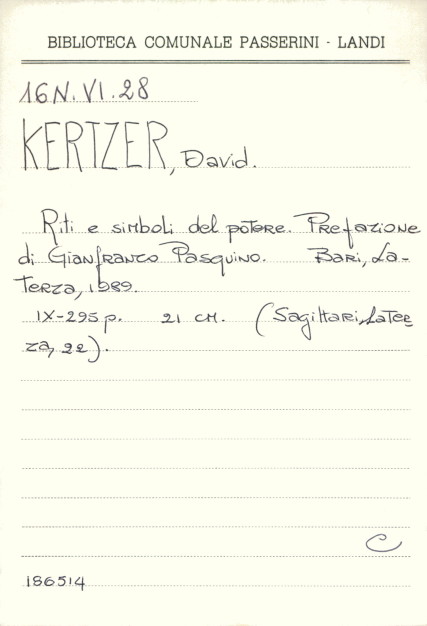 BIBLIOTECA COMUNALE PASSERINI - LANDI
16N.VI.28
KERTZER, David.
Riti e simboli del potere. Prefazione
di Gianfranco Pasquino. Bari, La-
terza, 1989.
IX-295 p. 21 cm. (Sagittari, Later
za, 22).
C
186514